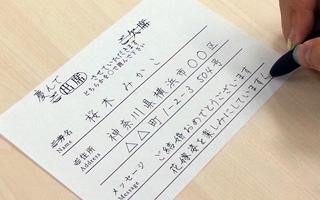 慶んで
ご出席
させていただきます
どちらかを○で囲んで下さい
ご欠席
ご芳名
Name
桜木みかこ
ご住所
Address
神奈川県横浜市○○区
△△町1-2-3 504号
メッセージ
Message
ご結婚おめでとうございます
花嫁姿を楽しみにしています!